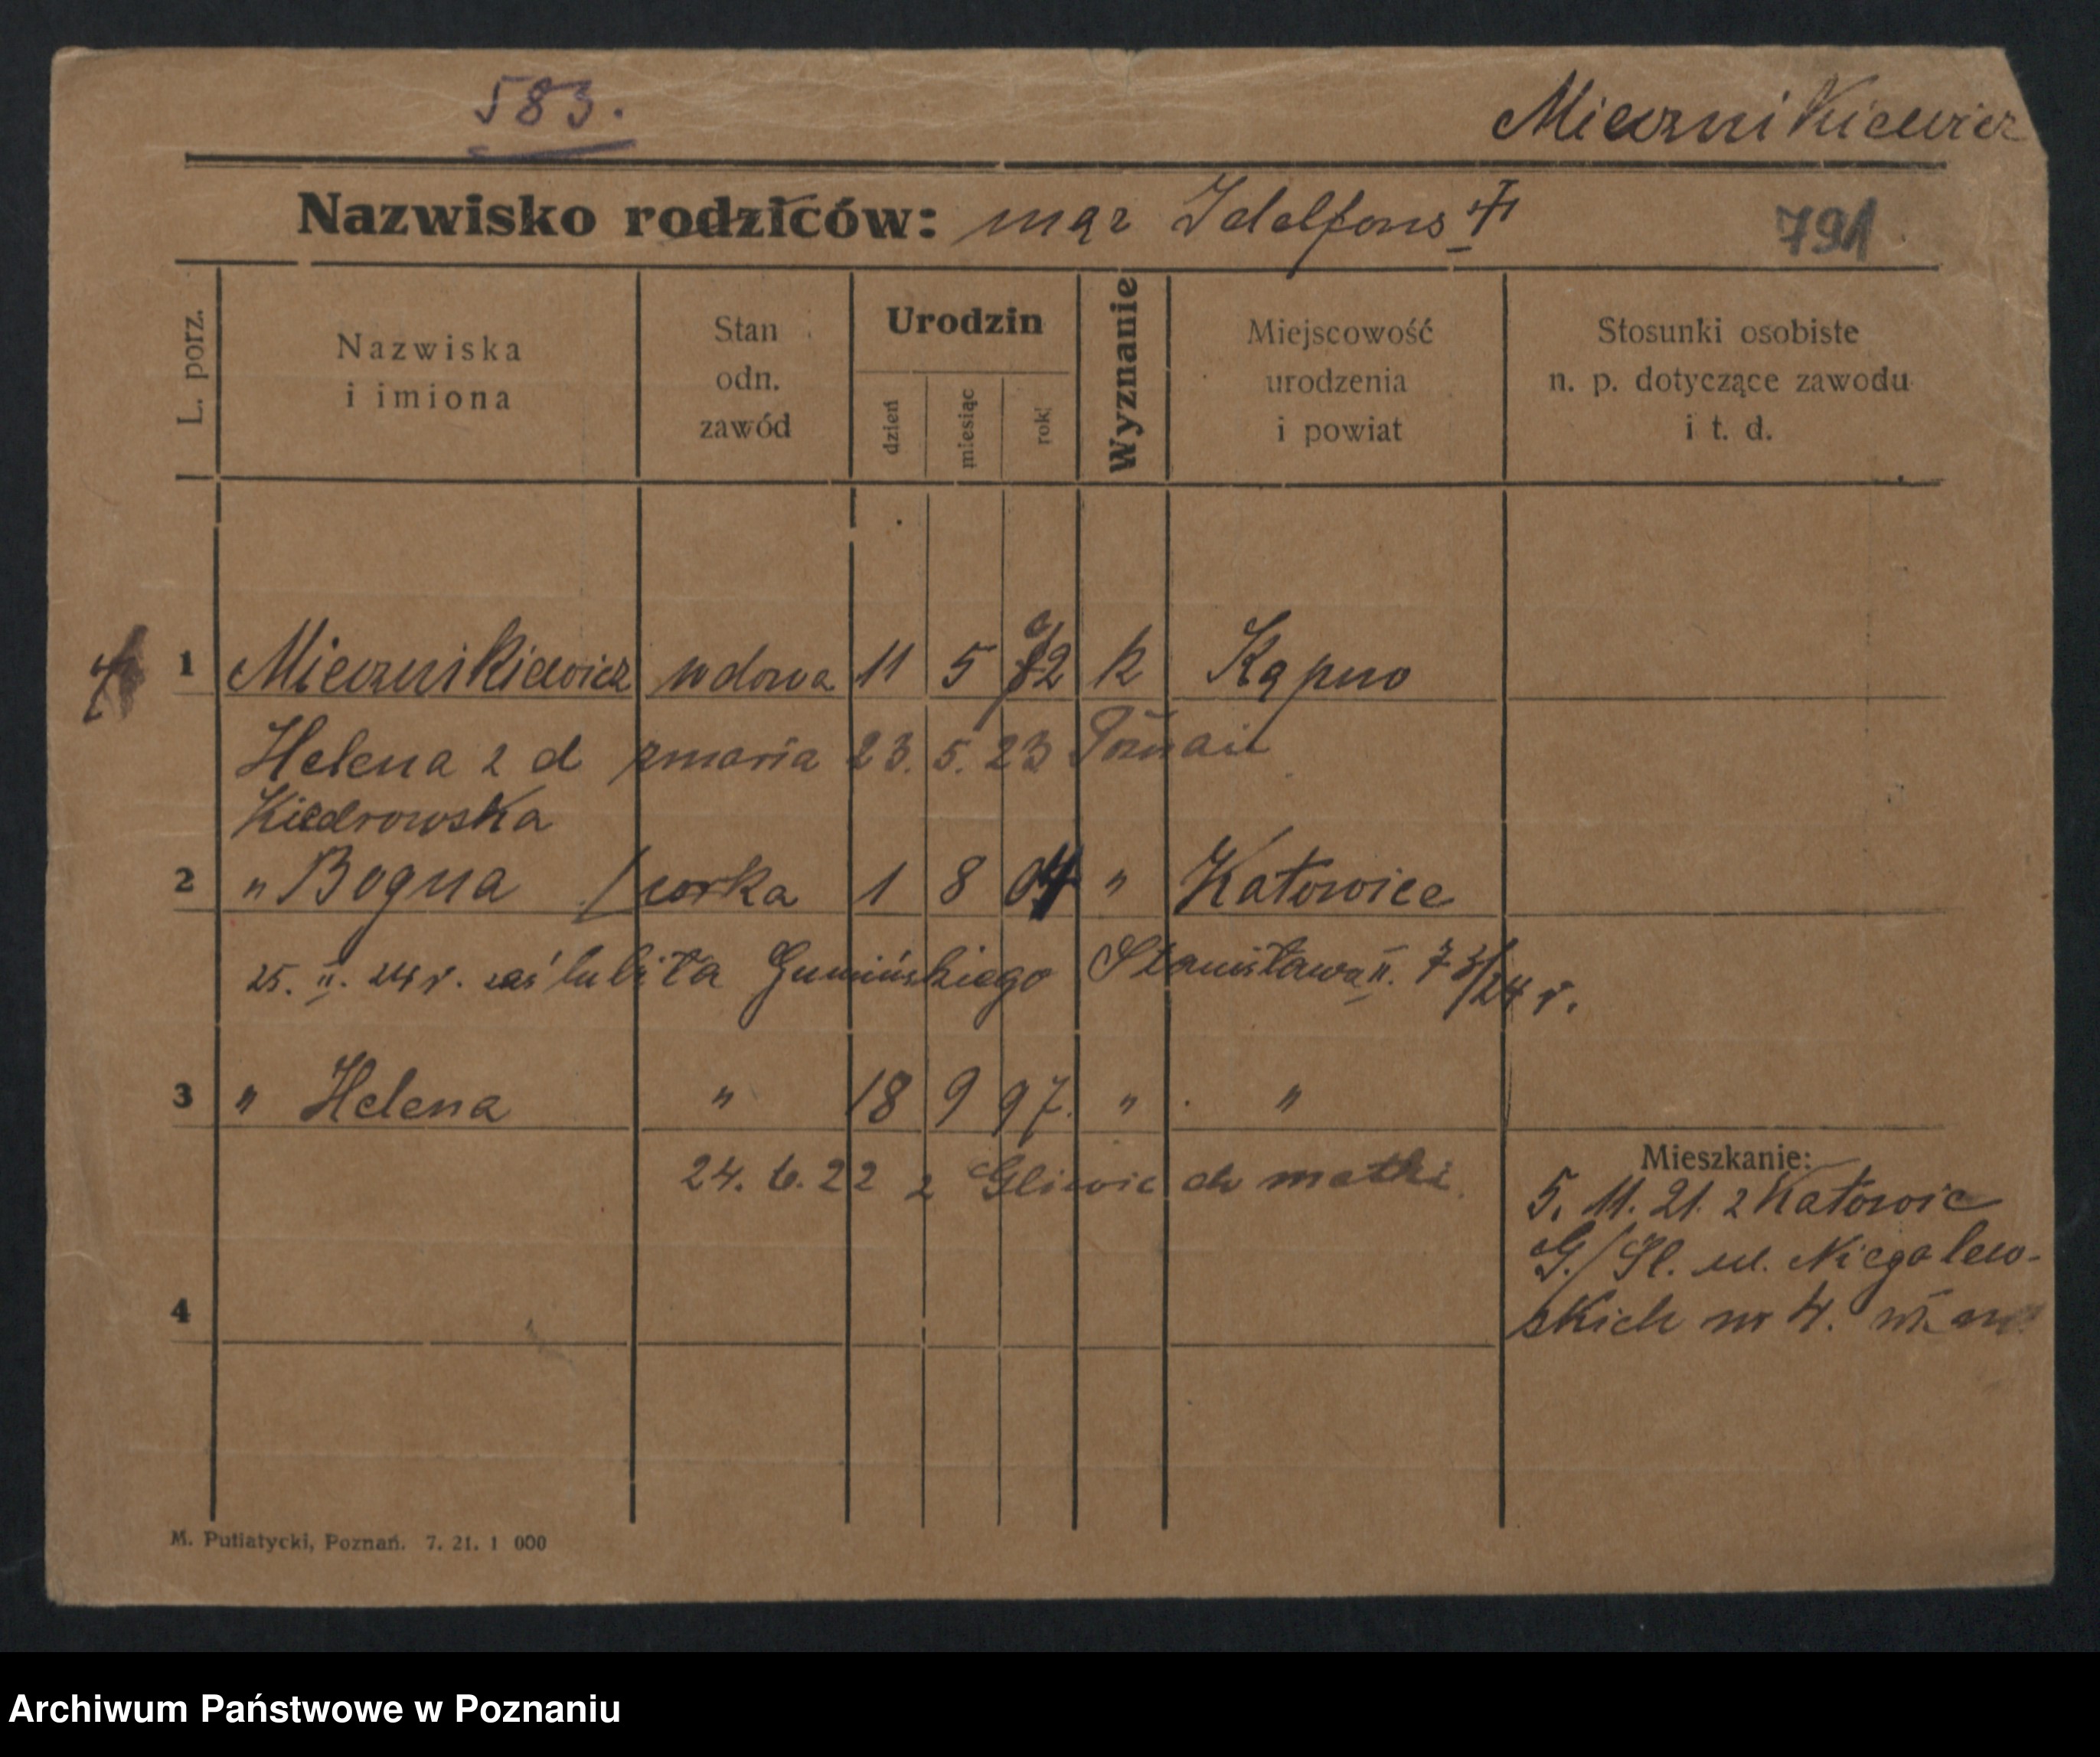 583.
Miecznikiewicz
Nazwisko rodziców: mąż Idelfons
791
L. porz.
Nazwiska i imiona
Stan odn. zawód
Urodzin
dzień
miesiąc
rok
Wyznanie
Miejscowość urodzenia i powiat
Stosunki osobiste n. p. dotyczące zawodu i t. d.
1 Miecznikiewicz wdowa 11 5 k Kąpno
Helena z d zmarła 23. 5. 23 Poznań
Kiedrowska
2 " Bogna córka 1 8 04 " Katowice
25. II. 24 r. zaślubiła Gumińskiego Stanisława II. 73/24 r.
3 " Helena " 18 9 97. " "
24. 6. 22 z Gliwic do matki.
Mieszkanie:
5. 11. 21. z Katowic
G./Śl. ul. Niegolew-
skich nr 4.
4
M. Putiatycki, Poznań. 7. 21. 1 000
Archiwum Państwowe w Poznaniu